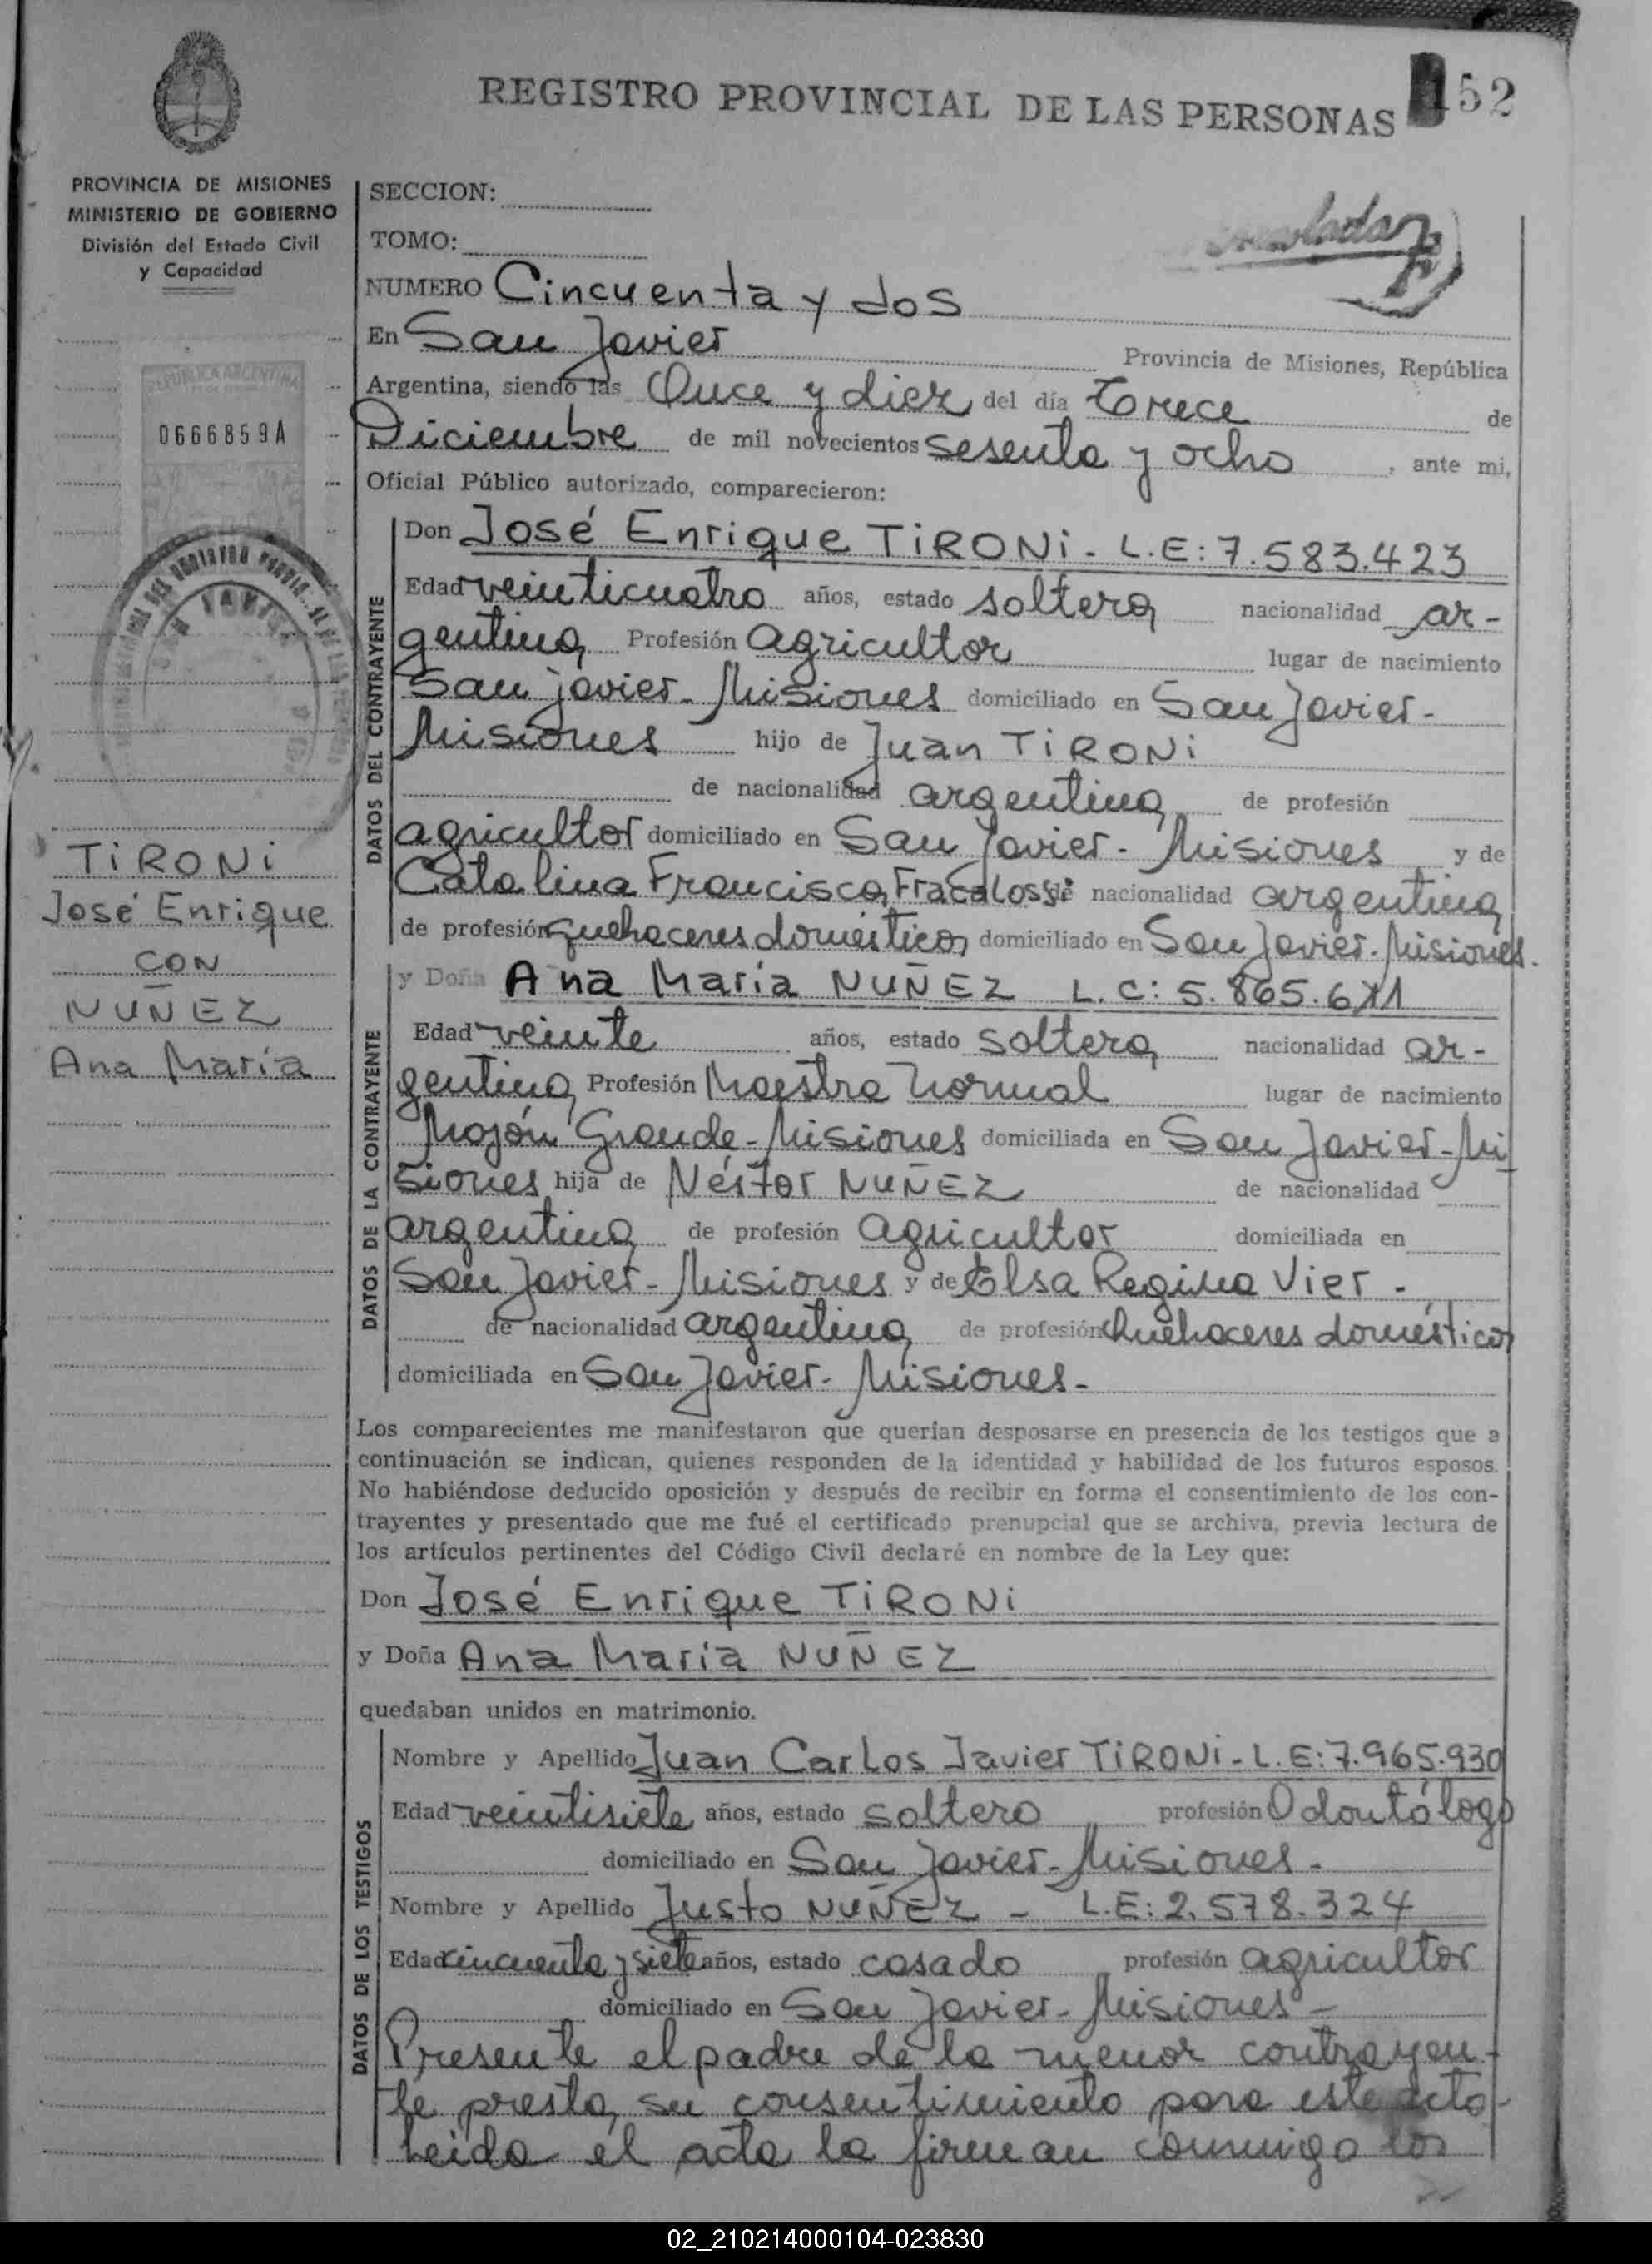 REGISTRO PROVINCIAL DE LAS PERSONAS 52
PROVINCIA DE MISIONES
MINISTERIO DE GOBIERNO
División del Estado Civil
y Capacidad
REPUBLICA ARGENTINA
0666859A
TiRONi
José Enrique
CON
NUÑEZ
Ana María
SECCION:
TOMO:
NUMERO Cincuenta y dos
En San Javier Provincia de Misiones, República
Argentina, siendo las Once y diez del día trece de
Diciembre de mil novecientos sesenta y ocho, ante mi,
Oficial Público autorizado, comparecieron:
DATOS DEL CONTRAYENTE
Don José Enrique TiRONi - L.E: 7.583.423
Edad veinticuatro años, estado soltero nacionalidad ar-
gentina Profesión agricultor lugar de nacimiento
San javier - Misiones domiciliado en San Javier -
Misiones hijo de Juan TiRONi
de nacionalidad argentina de profesión
agricultor domiciliado en San Javier - Misiones y de
Catalina Francisca Fracalossi de nacionalidad argentina
de profesión quehaceres domésticos domiciliado en San Javier - Misiones.
DATOS DE LA CONTRAYENTE
y Doña Ana María NUÑEZ L.C: 5.865.671
Edad veinte años, estado soltera nacionalidad ar-
gentina Profesión Maestra Normal lugar de nacimiento
Mojón Grande - Misiones domiciliada en San Javier - Mi
siones hija de Néstor NUÑEZ de nacionalidad
argentina de profesión agricultor domiciliada en
San Javier - Misiones y de Elsa Regina Vier -
de nacionalidad argentina de profesión Quehaceres domésticos
domiciliada en San Javier - Misiones -
Los comparecientes me manifestaron que querían desposarse en presencia de los testigos que a
continuación se indican, quienes responden de la identidad y habilidad de los futuros esposos.
No habiéndose deducido oposición y después de recibir en forma el consentimiento de los con-
trayentes y presentado que me fué el certificado prenupcial que se archiva, previa lectura de
los artículos pertinentes del Código Civil declaré en nombre de la Ley que:
Don José Enrique TiRONi
y Doña Ana María NUÑEZ
quedaban unidos en matrimonio.
DATOS DE LOS TESTIGOS
Nombre y Apellido Juan Carlos Javier TiRONi - L.E: 7.965.930
Edad veintisiete años, estado soltero profesión Odontólogo
domiciliado en San Javier - Misiones -
Nombre y Apellido Justo NUÑEZ - L.E: 2.578.324
Edad cincuenta y siete años, estado casado profesión agricultor
domiciliado en San Javier - Misiones -
Presente el padre de la menor contrayen-
te presta su consentimiento para este acto -
Leida el acta la firman conmigo los
02_210214000104-023830